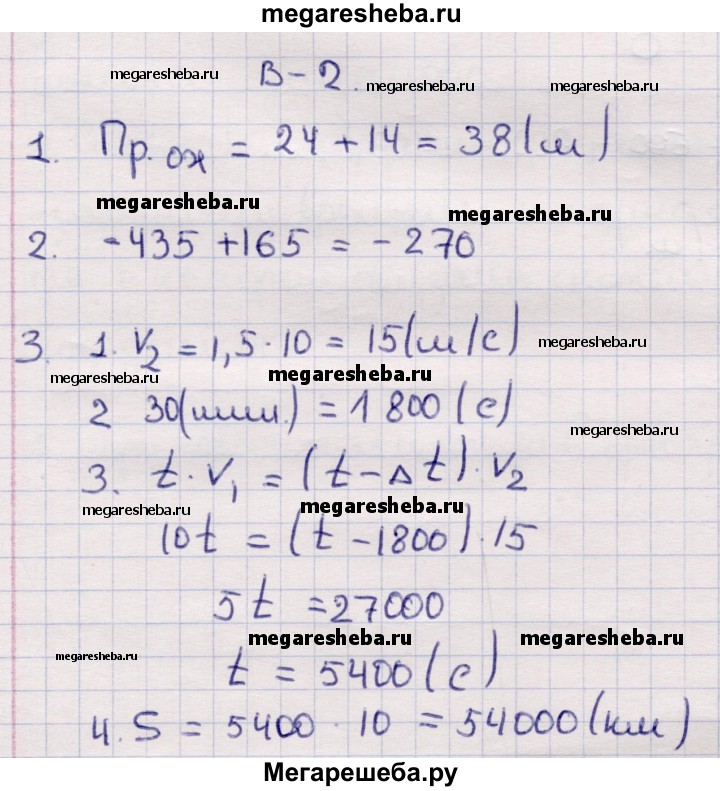 megaresheba.ru
В-2.
megaresheba.ru megaresheba.ru megaresheba.ru
1. Пр. ож = 24 + 14 = 38 (м)
megaresheba.ru megaresheba.ru
2. -435 + 165 = -270
3. 1. V₂ = 1,5 · 10 = 15 (м/с) megaresheba.ru
megaresheba.ru megaresheba.ru
2 30 (мин.) = 1 800 (с)
megaresheba.ru
3. t · V₁ = (t - Δt) · V₂
megaresheba.ru megaresheba.ru
10t = (t - 1800) · 15
5t = 27000
megaresheba.ru megaresheba.ru
megaresheba.ru
t = 5400 (с)
4. S = 5400 · 10 = 54000 (км)
Мегарешеба.ру